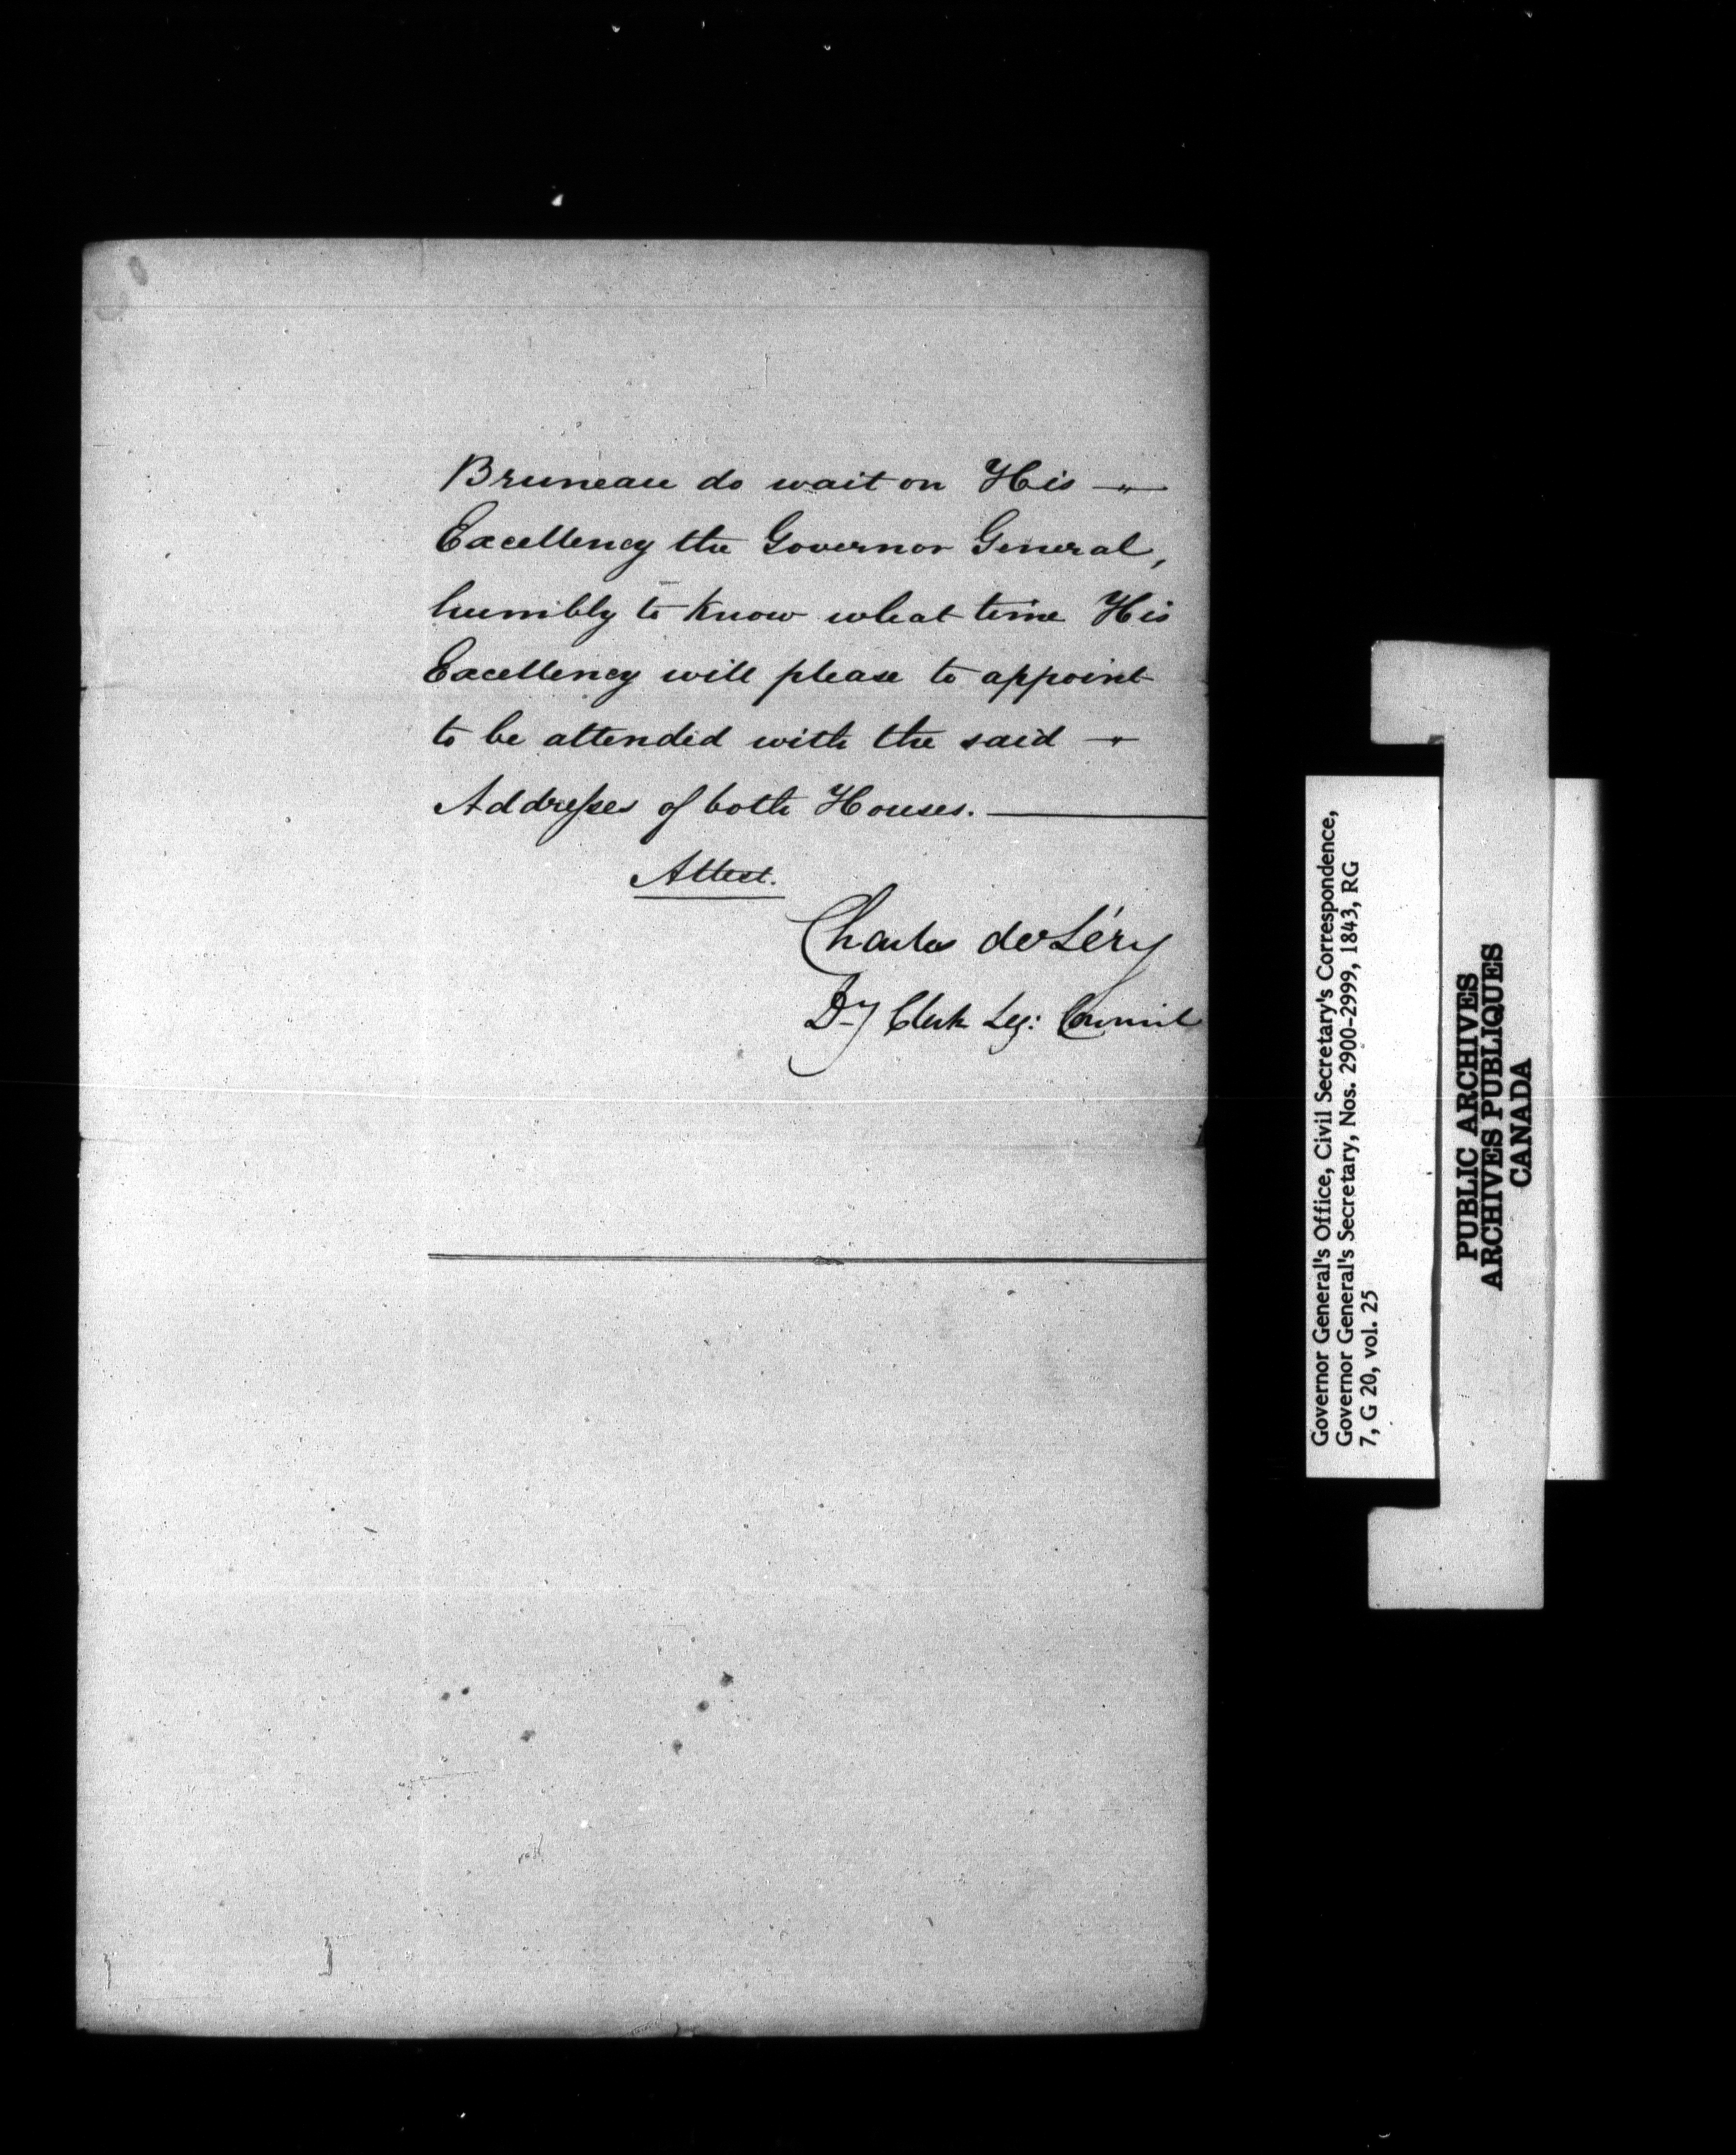 Bruneau do wait on His —
Excellency the Governor General,
humbly to know what time His
Excellency will please to appoint
to be attended with the said —
Addresses of both Houses. —
Attest.
Charles deLéry
Dy Clerk Leg: Council
Governor General's Office, Civil Secretary's Correspondence,
Governor General's Secretary, Nos. 2900-2999, 1843, RG
7, G 20, vol. 25
PUBLIC ARCHIVES
ARCHIVES PUBLIQUES
CANADA